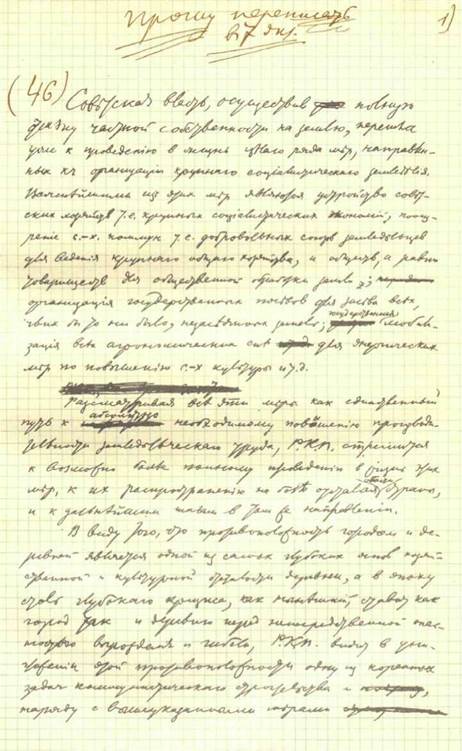 Прошу переписать
в 7 экз.
1)
(46) Советская власть, осуществив полную
отмену частной собственности на землю, перешла
уже к проведению в жизнь целого ряда мер, направлен-
ных к организации крупного социалистического земледелия.
Важнейшими из этих мер являются устройство совет-
ских хозяйств т.е. крупных социалистических экономий, поощ-
рение с.-х. коммун т.е. добровольных союзов земледельцев
для ведения крупного общего хозяйства, и обществ, а равно
товариществ для общественной обработки земли;
организация государственных посевов для засева всех,
чьих бы то ни было, незасеянных земель; государственная мобили-
зация всех агрономических сил для энергических
мер по повышению с-х культуры и т.д.
Рассматривая все эти меры как единственный
путь к абсолютно необходимому повышению производи-
тельности земледельческого труда, Р.К.П. стремится
к возможно более полному проведению в жизнь этих
мер, к их распространению на более отсталые области страны,
и к дальнейшим шагам в том же направлении.
В виду того, что противоположность городом и де-
ревней является одной из самых глубоких основ хозяй-
ственной и культурной отсталости деревни, а в эпоху
столь глубокого кризиса, как нынешний, ставит как
город так и деревню перед непосредственной опас-
ностью вырождения и гибели, Р.К.П. видит в унич-
тожении этой противоположности одну из коренных
задач коммунистического строительства и
наряду с вышеуказанными мерами